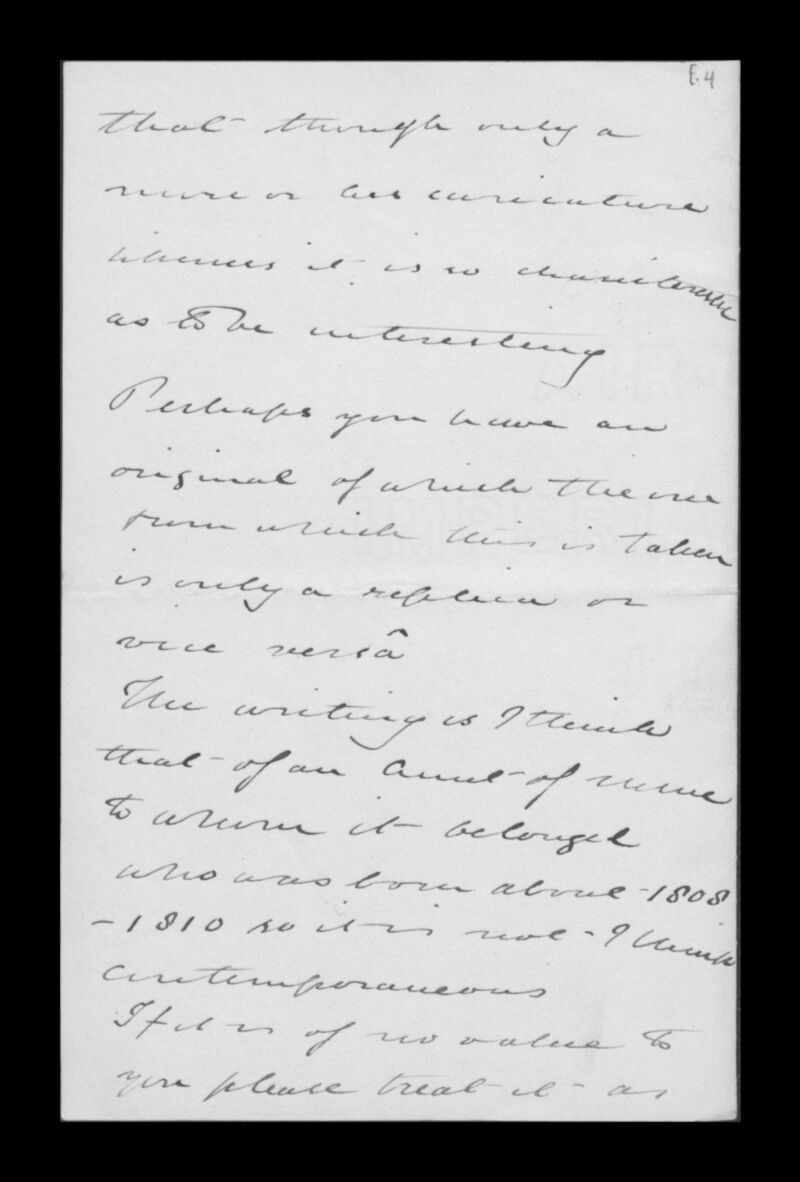 E.4
that though only a
more or less caricature
likeness it is so characteristic
as to be interesting
Perhaps you have an
original of which the one
from which this is taken
is only a replica or
vice versâ
The writing is I think
that of an Aunt of mine
to whom it belonged
who was born about 1808
- 1810 so it is not I think
contemporaneous
If it is of no value to
you please treat it as